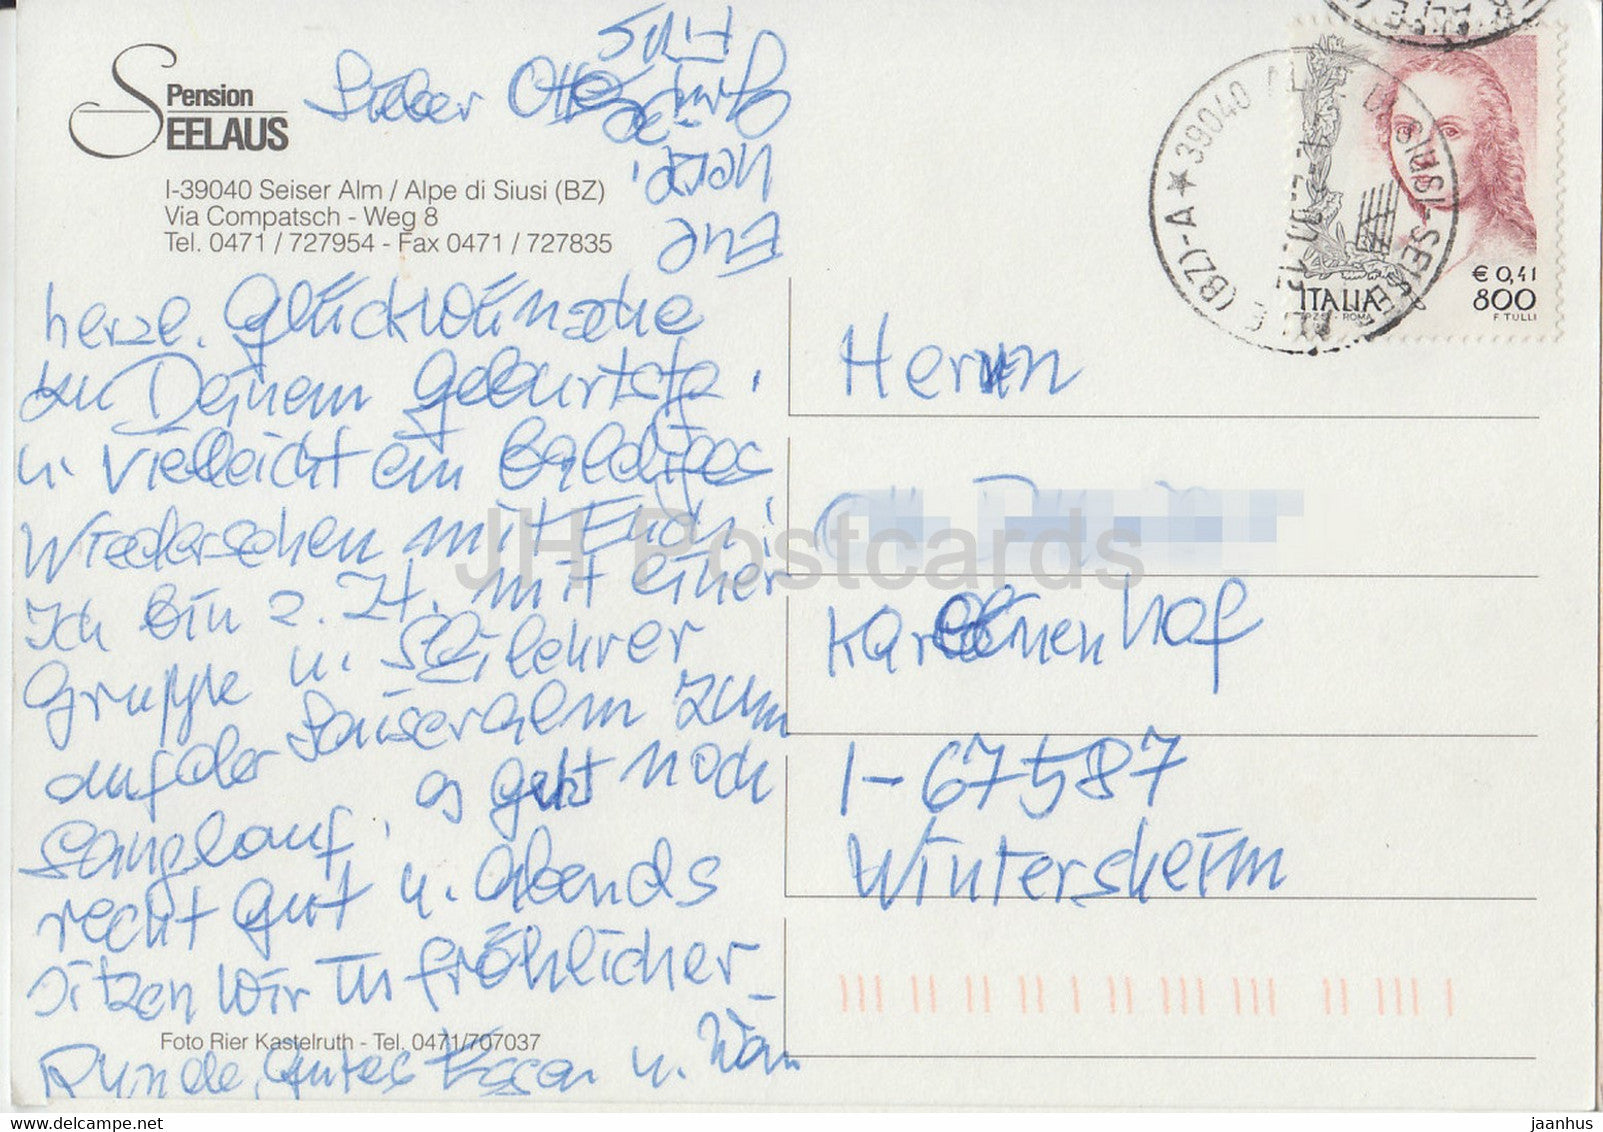 Pension
SEELAUS
I-39040 Seiser Alm / Alpe di Siusi (BZ)
Via Compatsch - Weg 8
Tel. 0471 / 727954 - Fax 0471 / 727835
Lieber Otto
herzl. Glückwünsche
zu Deinem Geburtstg.
u. vielleicht ein baldiges
Wiedersehen mit Euch!
Ich bin z. Zt. mit einer
Gruppe u. Skilehrer
auf der Seiseralm zum
Langlauf, es geht noch
recht gut u. Abends
sitzen wir in fröhlicher
Runde, Gutes Essen u. Wein
Foto Rier Kastelruth - Tel. 0471/707037
Eue
Herrn
Karolinenhof
I-67587
Wintersheim
39040
(BZ)-A
SIUSI-SEISER
€ 0,41
800
ITALIA
F. TULLI
ROMA
JH Postcards
jaanhus